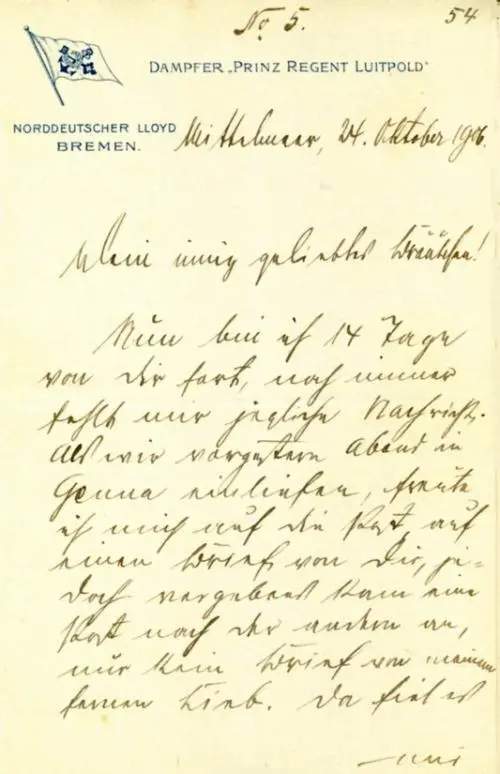 No 5.
54
DAMPFER „PRINZ REGENT LUITPOLD"
NORDDEUTSCHER LLOYD
BREMEN.
Mittelmeer, 24. Oktober 1906.
Mein innig geliebtes Bräutchen!
Nun bin ich 14 Tage
von Dir fort, noch immer
fehlt mir jegliche Nachricht.
Als wir vorgestern Abend in
Genua einliefen, freute
ich mich auf die Post, auf
einen Brief von Dir, je-
doch vergebens kam eine
Post nach der andern an,
nur kein Brief von meinem
fernen Lieb. Da fiel es
mir